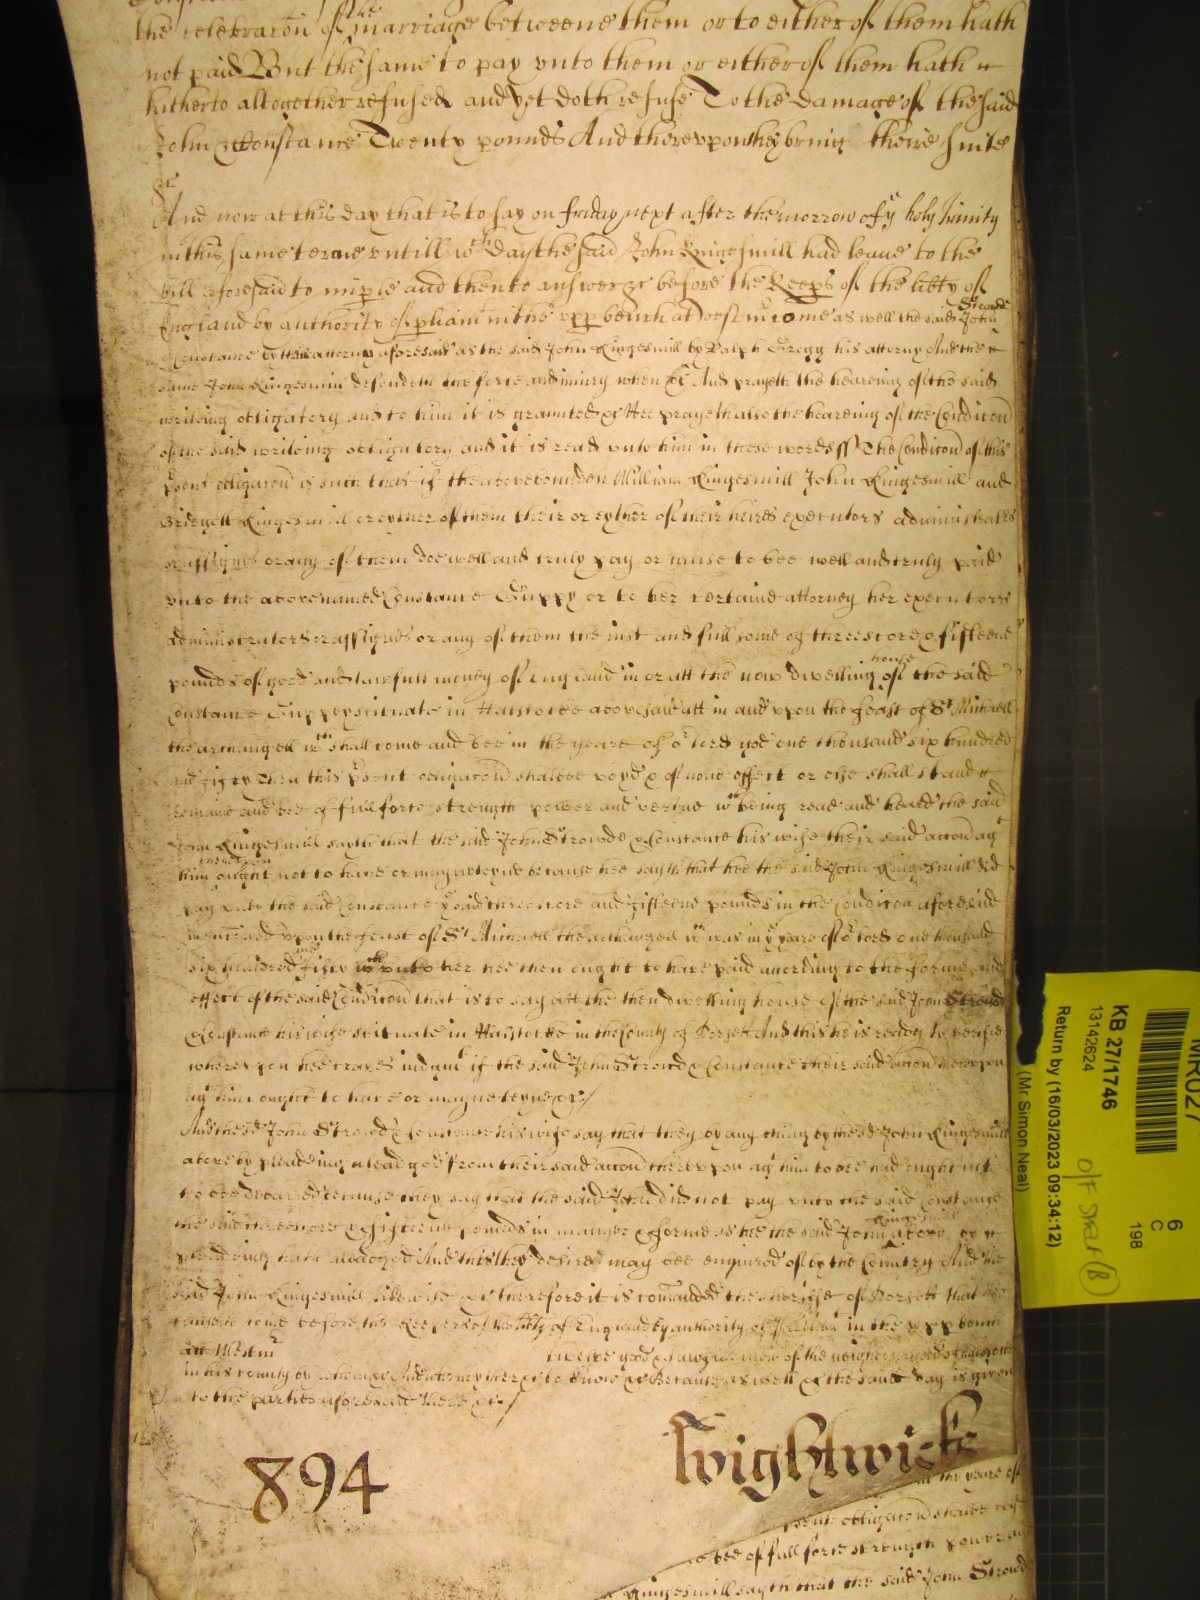 the celebracon of the marriage betweene them or to either of them hath
not paid But the same to pay vnto them or either of them hath
hitherto altogether refused and yet doth refuse To the damage of the said
John & Constance Twenty pounds And therevpon they bring theire suite
&c
And now at this day that is to say on friday next after the morrow of ye holy Trinity
in this same terme vntill wch day the said John Kingesmill had leaue to the
bill aforesaid to imple and then to answer &c before the Keeps of the libty of
England by authority of pliamt in the vpp bench at Westm come as well the said John Strowde
& Constance by their attorny aforesaid as the said John Kingesmill by Ralph Gregg his attorny And the
same John Kingesmill defendeth the force and iniury when &c And prayeth the hearing of the said
writeing obligatory and to him it is graunted &c Hee prayeth also the heareing of the Condicon
of the said writeing obligatory and it is read vnto him in these words ss The Condicon of this
psent obligacon is such that if the aboue bounden William Kingesmill John Kingesmill and
Bridgett Kingesmill or eyther of them their or eyther of their heires executors administrators
or assignes or any of them doe well and truly pay or cause to bee well and truly paid
vnto the aboue named Constance Guppy or to her certaine attorney her executors
administrators or assignes or any of them the iust and full some of threescore & fifteene
pounds of good and lawfull money of England in or att the now dwelling house of the said
Constance Guppy scituate in Halstocke aboue said att in and vpon the feast of St Michaell
the archangell wch shall come and bee in the yeare of or lord god one thousand six hundred
and fifty then this psent obligacon shalbee voyd & of none effect or else shall stand
remaine and bee of full force strength power and vertue wch being read and heard the said
John Kingesmill sayth that the said John Strowde & Constance his wife their said accon agt
him therevpon ought not to haue or mayneteyne because hee sayth that hee the said John Kingesmill did
pay vnto the said Constance ye said threescore and fifteene pounds in the Condicon aforesaid
menconed vpon the feast of St Michaell the archangell wch was in ye yeare of or lord one thousand
six hundred and fifty wch vnto her hee then ought to haue paid according to the forme and
effect of the said Condicon that is to say att the then dwelling house of the said John Strowd
& Constance his wife scituate in Halstocke in the County of Dorsett And this he is ready to verifie
wherevpon hee craues iudgmt if the said John Strowd & Constance their said accon therevpon
agt him ought to haue or mayneteyne &c /
And the sd John Strowd & Constance his wife say that they by any thing by the sd John Kingesmill
aboue by pleadeing alleadged from their said accon therevpon agt him to bee had ought not
to bee debarred because they say that the said John did not pay vnto the said Constance
the said threescore & fifteene pounds in manner & forme as hee the said John Kingesmill aboue by
pleadeing hath alleadged And this they desire may bee enquired of by the Country And the
said John Kingesmill likewise &c therefore it is comanded the sheriffe of Dorsett that hee
cause to come before the Keepers of the libty of England by authority of Parliamt in the vpp bench
att Westm twelve good & lawfull men of the neighborhood
in his county by whom &c And who neyther &c to know &c Because as well &c the same day is given
to the parties aforesaid there &c /
894
Wightwicke
in the yeare of
psent obligacon shalbe voy
bee of full force strength power an
Kingesmill sayth that the said John Strowd
MR027
6
C
198
KB 27/1746
13142624
Return by (16/03/2023 09:34:12)
(Mr Simon Neal)
O/F Shelf B